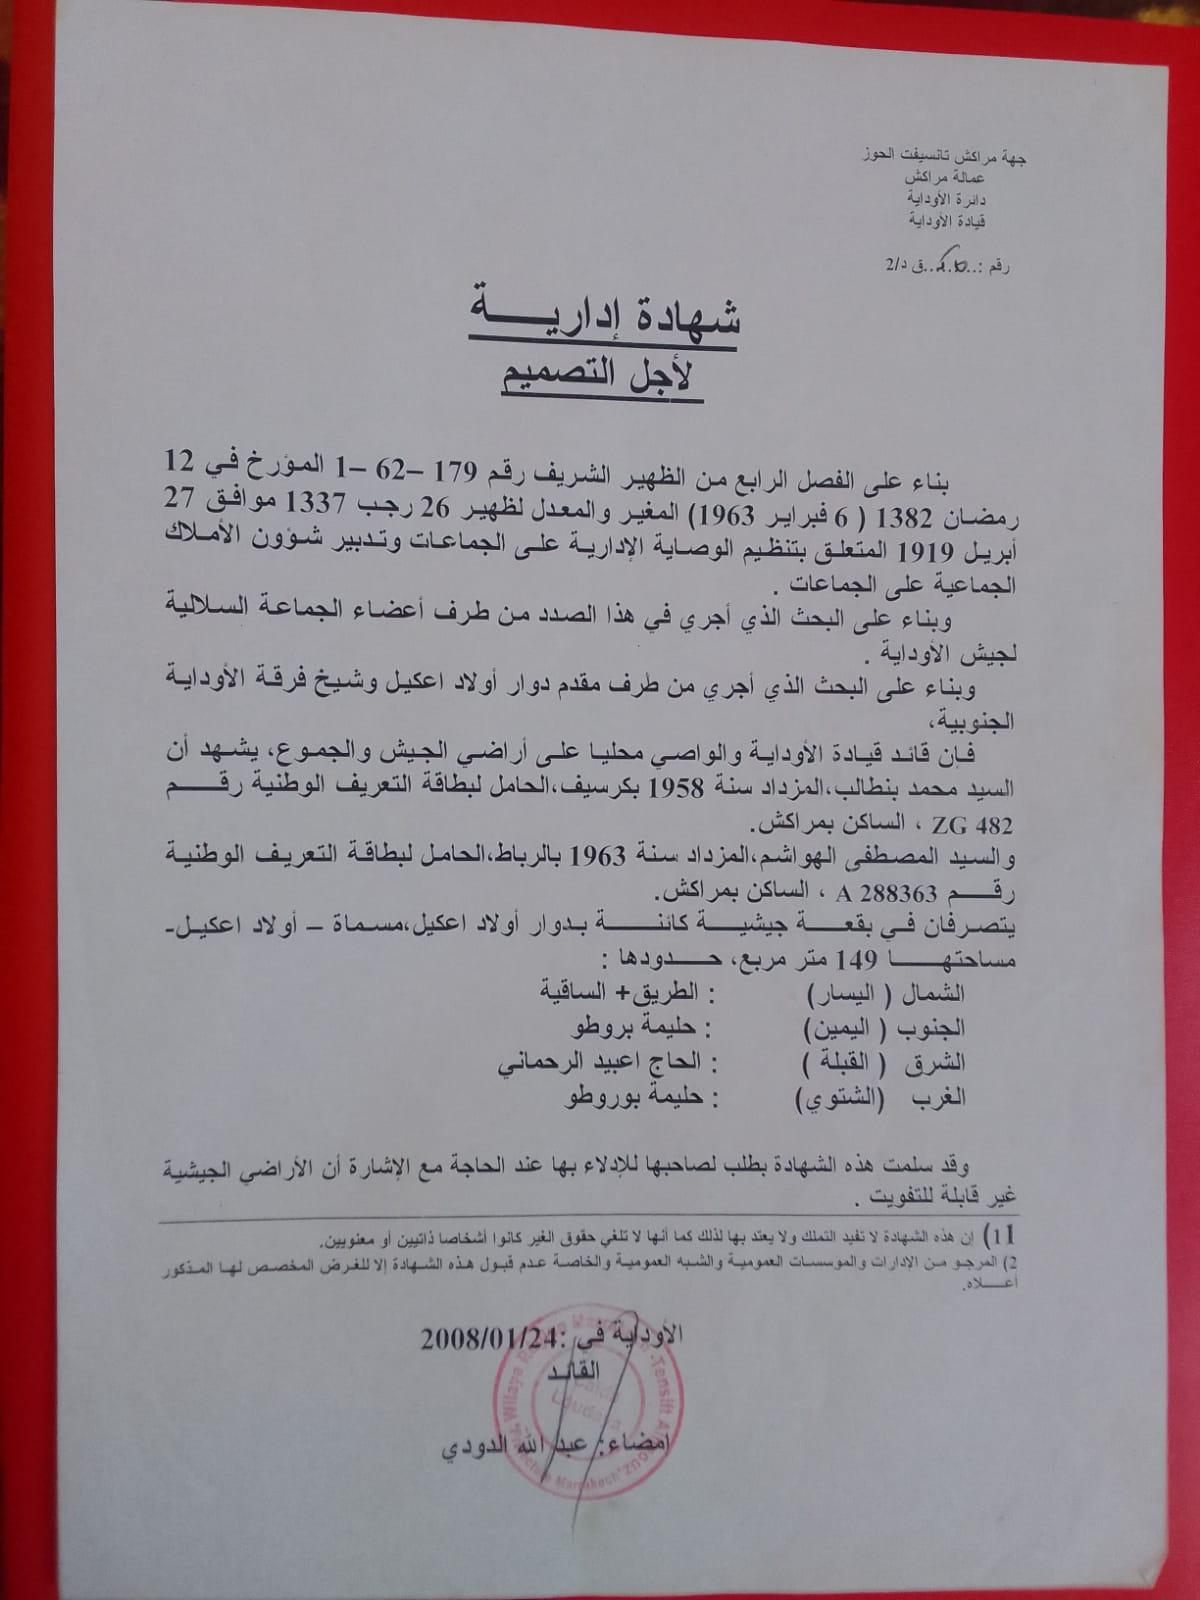 جهة مراكش تانسيفت الحوز
عمالة مراكش
دائرة الأوداية
قيادة الأوداية
رقم :.....ق د/2
شهادة إداريـــــة
لأجل التصميم
بناء على الفصل الرابع من الظهير الشريف رقم 179 –62 –1 المؤرخ في 12
رمضان 1382 ( 6 فبراير 1963) المغير والمعدل لظهير 26 رجب 1337 موافق 27
أبريل 1919 المتعلق بتنظيم الوصاية الإدارية على الجماعات وتدبير شؤون الأملاك
الجماعية على الجماعات .
وبناء على البحث الذي أجري في هذا الصدد من طرف أعضاء الجماعة السلالية
لجيش الأوداية .
وبناء على البحث الذي أجري من طرف مقدم دوار أولاد اعكيل وشيخ فرقة الأوداية
الجنوبية،
فإن قائد قيادة الأوداية والواصي محليا على أراضي الجيش والجموع، يشهد أن
السيد محمد بنطالب،المزداد سنة 1958 بكرسيف،الحامل لبطاقة التعريف الوطنية رقـــــم
ZG 482 ، الساكن بمراكش.
والسيد المصطفى الهواشم،المزداد سنة 1963 بالرباط،الحامل لبطاقة التعريف الوطنية
رقـــــم A 288363 ، الساكن بمراكش.
يتصرفان في بقعـــة جيشيـــة كائنـــــة بدوار أولاد اعكيل،مسماة – أولاد اعكيل-
مساحتهـــــا 149 متر مربع، حـــدودها :
الشمال ( اليسار) : الطريق+ الساقية
الجنوب ( اليمين) : حليمة بروطو
الشرق ( القبلة ) : الحاج اعبيد الرحماني
الغرب (الشتوي) : حليمة بوروطو
وقد سلمت هذه الشهادة بطلب لصاحبها للإدلاء بها عند الحاجة مع الإشارة أن الأراضي الجيشية
غير قابلة للتفويت .
11) إن هذه الشهادة لا تفيد التملك ولا يعتد بها لذلك كما أنها لا تلغي حقوق الغير كانوا أشخاصا ذاتيين أو معنويين.
2) المرجو من الإدارات والموسسات العمومية والشبه العمومية والخاصة عدم قبول هذه الشهادة إلا للغرض المخصص لها المذكور
أعـــلاه.
الأوداية في :2008/01/24
القائد
إمضاء: عبد الله الدودي